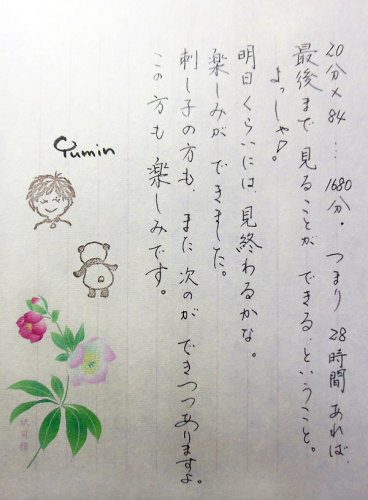 20分×84…1680分。つまり28時間あれば、
最後まで見ることができる、ということ。
よっしゃ♪。
明日くらいには、見終わるかな。
楽しみができました。
刺し子の方も、また次のができつつありますよ。
この方も楽しみです。
Yumin